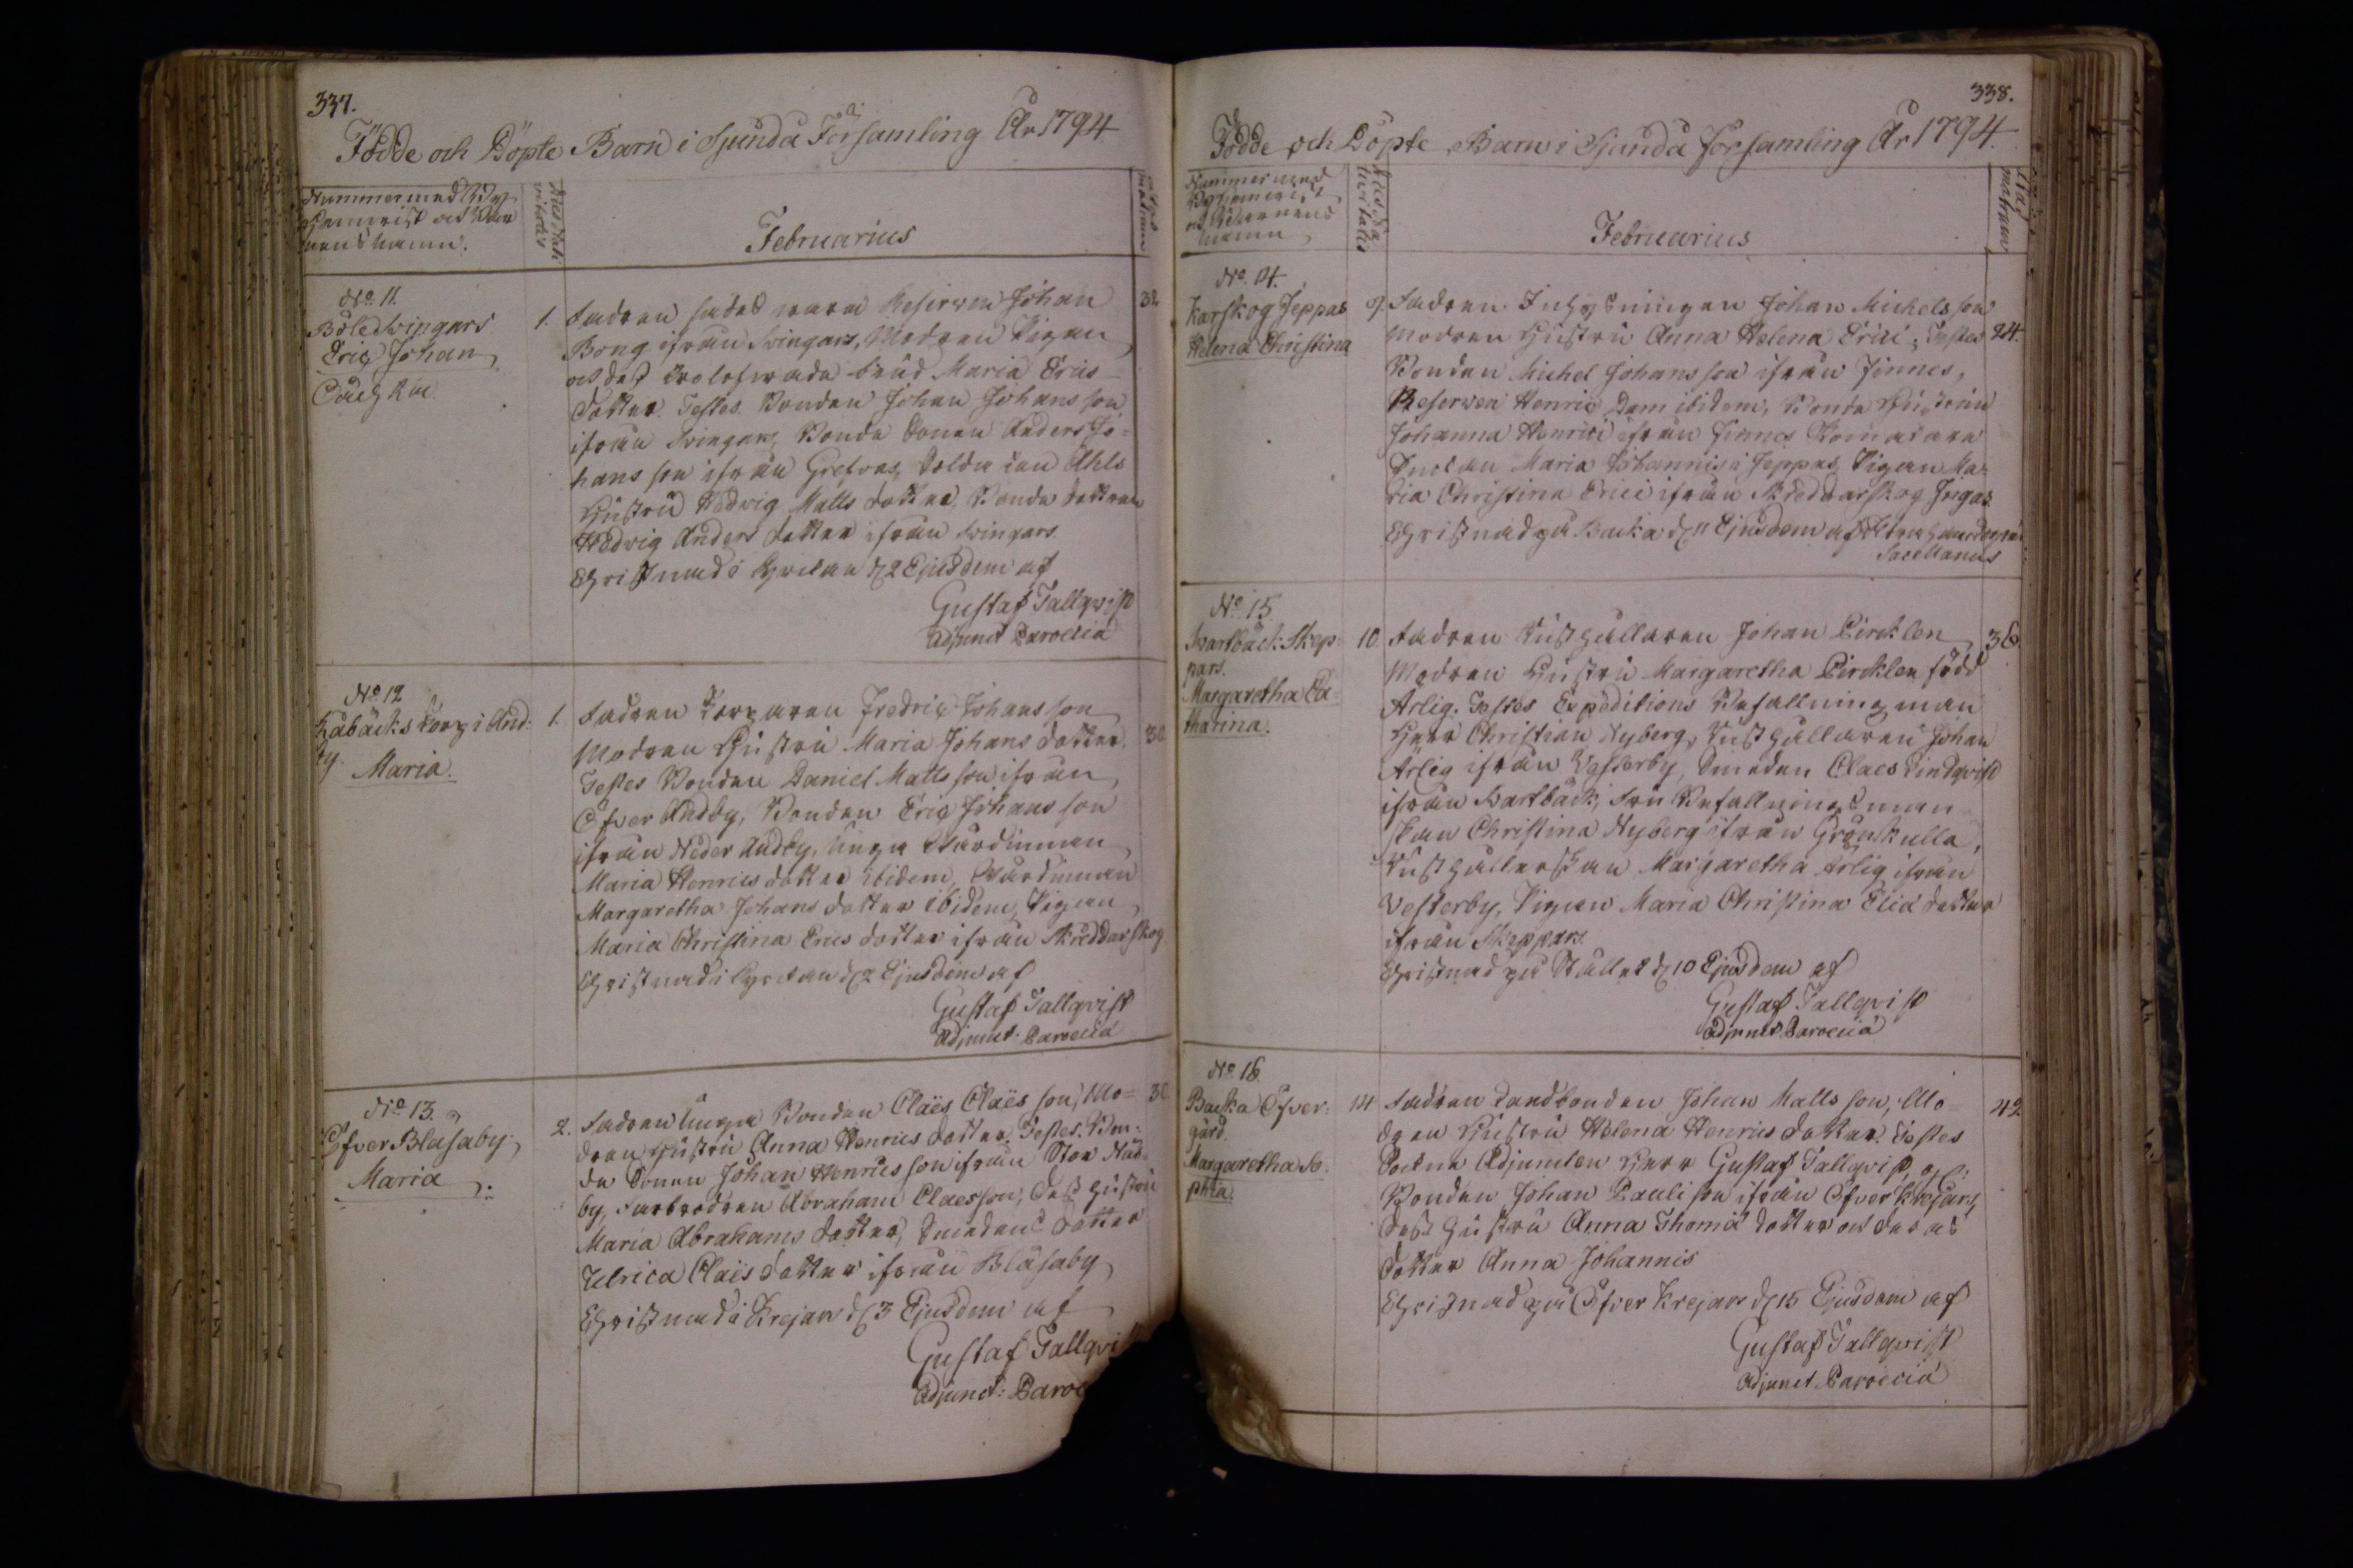 337.
Födde och Döpte Barn i Sjundå Församling År 1794
Nummer med By,
Hemvist och Bar
nens namn.
Dies Nati
vitatis
Februarius
Ætas
matrum
No. 11.
Böle Svingars
Eric Johan
1. Fadren sades wara Reserven Johan
32
Bong ifrån Svingars, Modren Pigan
och dess trolofwade brud Maria Erics
dotter. Testes. Bonden Johan Johansson
ifrån Svingars, Bonde Sonen Anders Jo=
hansson ifrån Grefvas, Soldaten Ahls
Hustru Hedvig Matts dotter, Bonde dottren
Hedvig Anders dotter ifrån Svingars.
Christnad i Kyrkan d. 2 Ejusdem af
Gustaf Tallqvist
Adjunct Paroeciæ
No 12
Kabäcks torp i And:
by.
Maria.
1. Fadren Torparen Fredric Johansson
Modren Hustru Maria Johans dotter.
30
Testes Bonden Daniel Mattsson ifrån
Öfver Andby, Bonden Eric Johansson
ifrån Neder Andby, unga Wärdinnan
Maria Henrics dotter ibidem, Wärdinnan
Margaretha Johans dotter ibidem, Pigan
Maria Christina Erics dotter ifrån Skreddarskog
Christnad i Kyrkan d. 2 Ejusdem af
Gustaf Tallqvist
Adjunct: Paroeciæ
No 13.
Öfver Blasaby
Maria
2. Fadren Unga Bonden Claës Claës son, Mo=
30
dren Hustru Anna Henrics dotter. Testes. Bon:
de Sonen Johan Henricsson ifrån Stor Näd
by, Farbrodren Abraham Claesson, dess hustru
Maria Abrahams dotter, Smedens dotter
Ulrica Claës dotter ifrån Blåsaby
Christnad i Krejars d. 3 Ejusdem af
Gustaf Tallqvi
Adjunct: Paroe
338.
Födde och Döpte Barn i Sjundå Församling År 1794.
Nummer med
By, Hemvist
och Barnens
namn
Dies Na
tivitatis
Februarius
Ætas
matrum
No. 14.
Karskog Jeppas
Helena Christina
9. Fadren Inhysningen Johan Michelsson
Modren Hustru Anna Helena Erici, Testes
24.
Bonden Michel Johansson ifrån Finnes,
Reserven Henric Dam ibidem, Bonde Hustrun
Johanna Henrici ifrån Finnes
Enckan Maria Johannis i Jeppas, Pigan Ma=
ria Christina Erici ifrån Skreddarskog Frigas
Christnad på Backa d. 11 Ejusdem af
Sacellanus
No. 15.
Svartbäck Skep=
pars.
Margaretha Ca
tharina.
10. Fadren Rusthållaren Johan Pircklen
36
Modren Hustru Margaretha Pircklen född
Arlig. Testes Expeditions Befallningsman
Herr Christian Nyberg, Rusthållaren Johan
Arlig ifrån Vesterby, Smeden Claes Lindqvist
ifrån Svartbäck, Fru Befallningsman
skan Christina Nyberg ifrån Grönkulla,
Rusthållerskan Margaretha Arlig ifrån
Vesterby, Pigan Maria Christina Eliæ dotter
ifrån Skeppars.
Christnad på Stället d. 10 Ejusdem af
Gustaf Tallqvist
Adjunct Paroeciæ
No. 16.
Backa Öfver:
gård.
Margaretha So
phia.
14 Fadren Landbonden Johan Matts son, Mo=
42
dren Hustru Helena Henrics dotter. Testes
Sockne Adjuncten Herr Gustaf Tallqvist,
Bonden Johan Pauli son ifrån Öfver Krejars,
Dess hustru Anna Thomæ dotter och deras
dotter Anna Johannis
Christnad på Öfver Krejars d. 15 Ejusdem af
Gustaf Tallqvist
Adjunct Paroeciæ